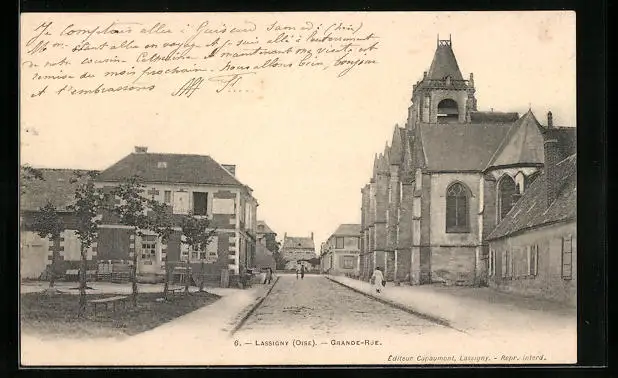 Je Comptais aller à Guiscard Samedi (hier)
étant allée en voyage et je suis allé à l'enterrement
de notre cousine et maintenant ma visite est
remise au mois prochain. Nous allons bien, bonjour
et t'embrassons
6. — LASSIGNY (OISE). — GRANDE-RUE.
Éditeur Capaumont, Lassigny. - Repr. interd.